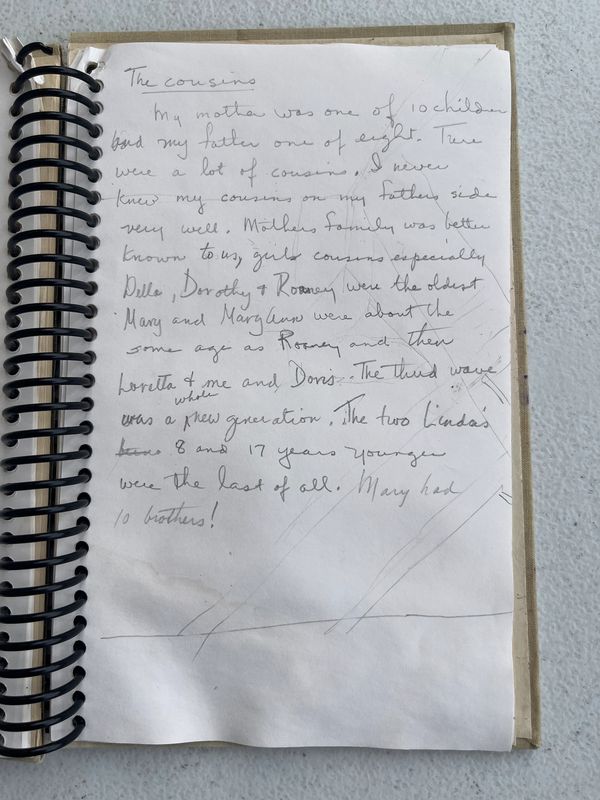 The cousins
My mother was one of 10 children
and my father one of eight. There
were a lot of cousins. I never
knew my cousins on my fathers side
very well. Mothers family was better
known to us, girl cousins especially
Della, Dorothy & Rooney were the oldest
Mary and Mary Ann were about the
same age as Rooney and then
Loretta & me and Doris. The third wave
was a whole new generation. The two Linda's
8 and 17 years younger
were the last of all. Mary had
10 brothers!